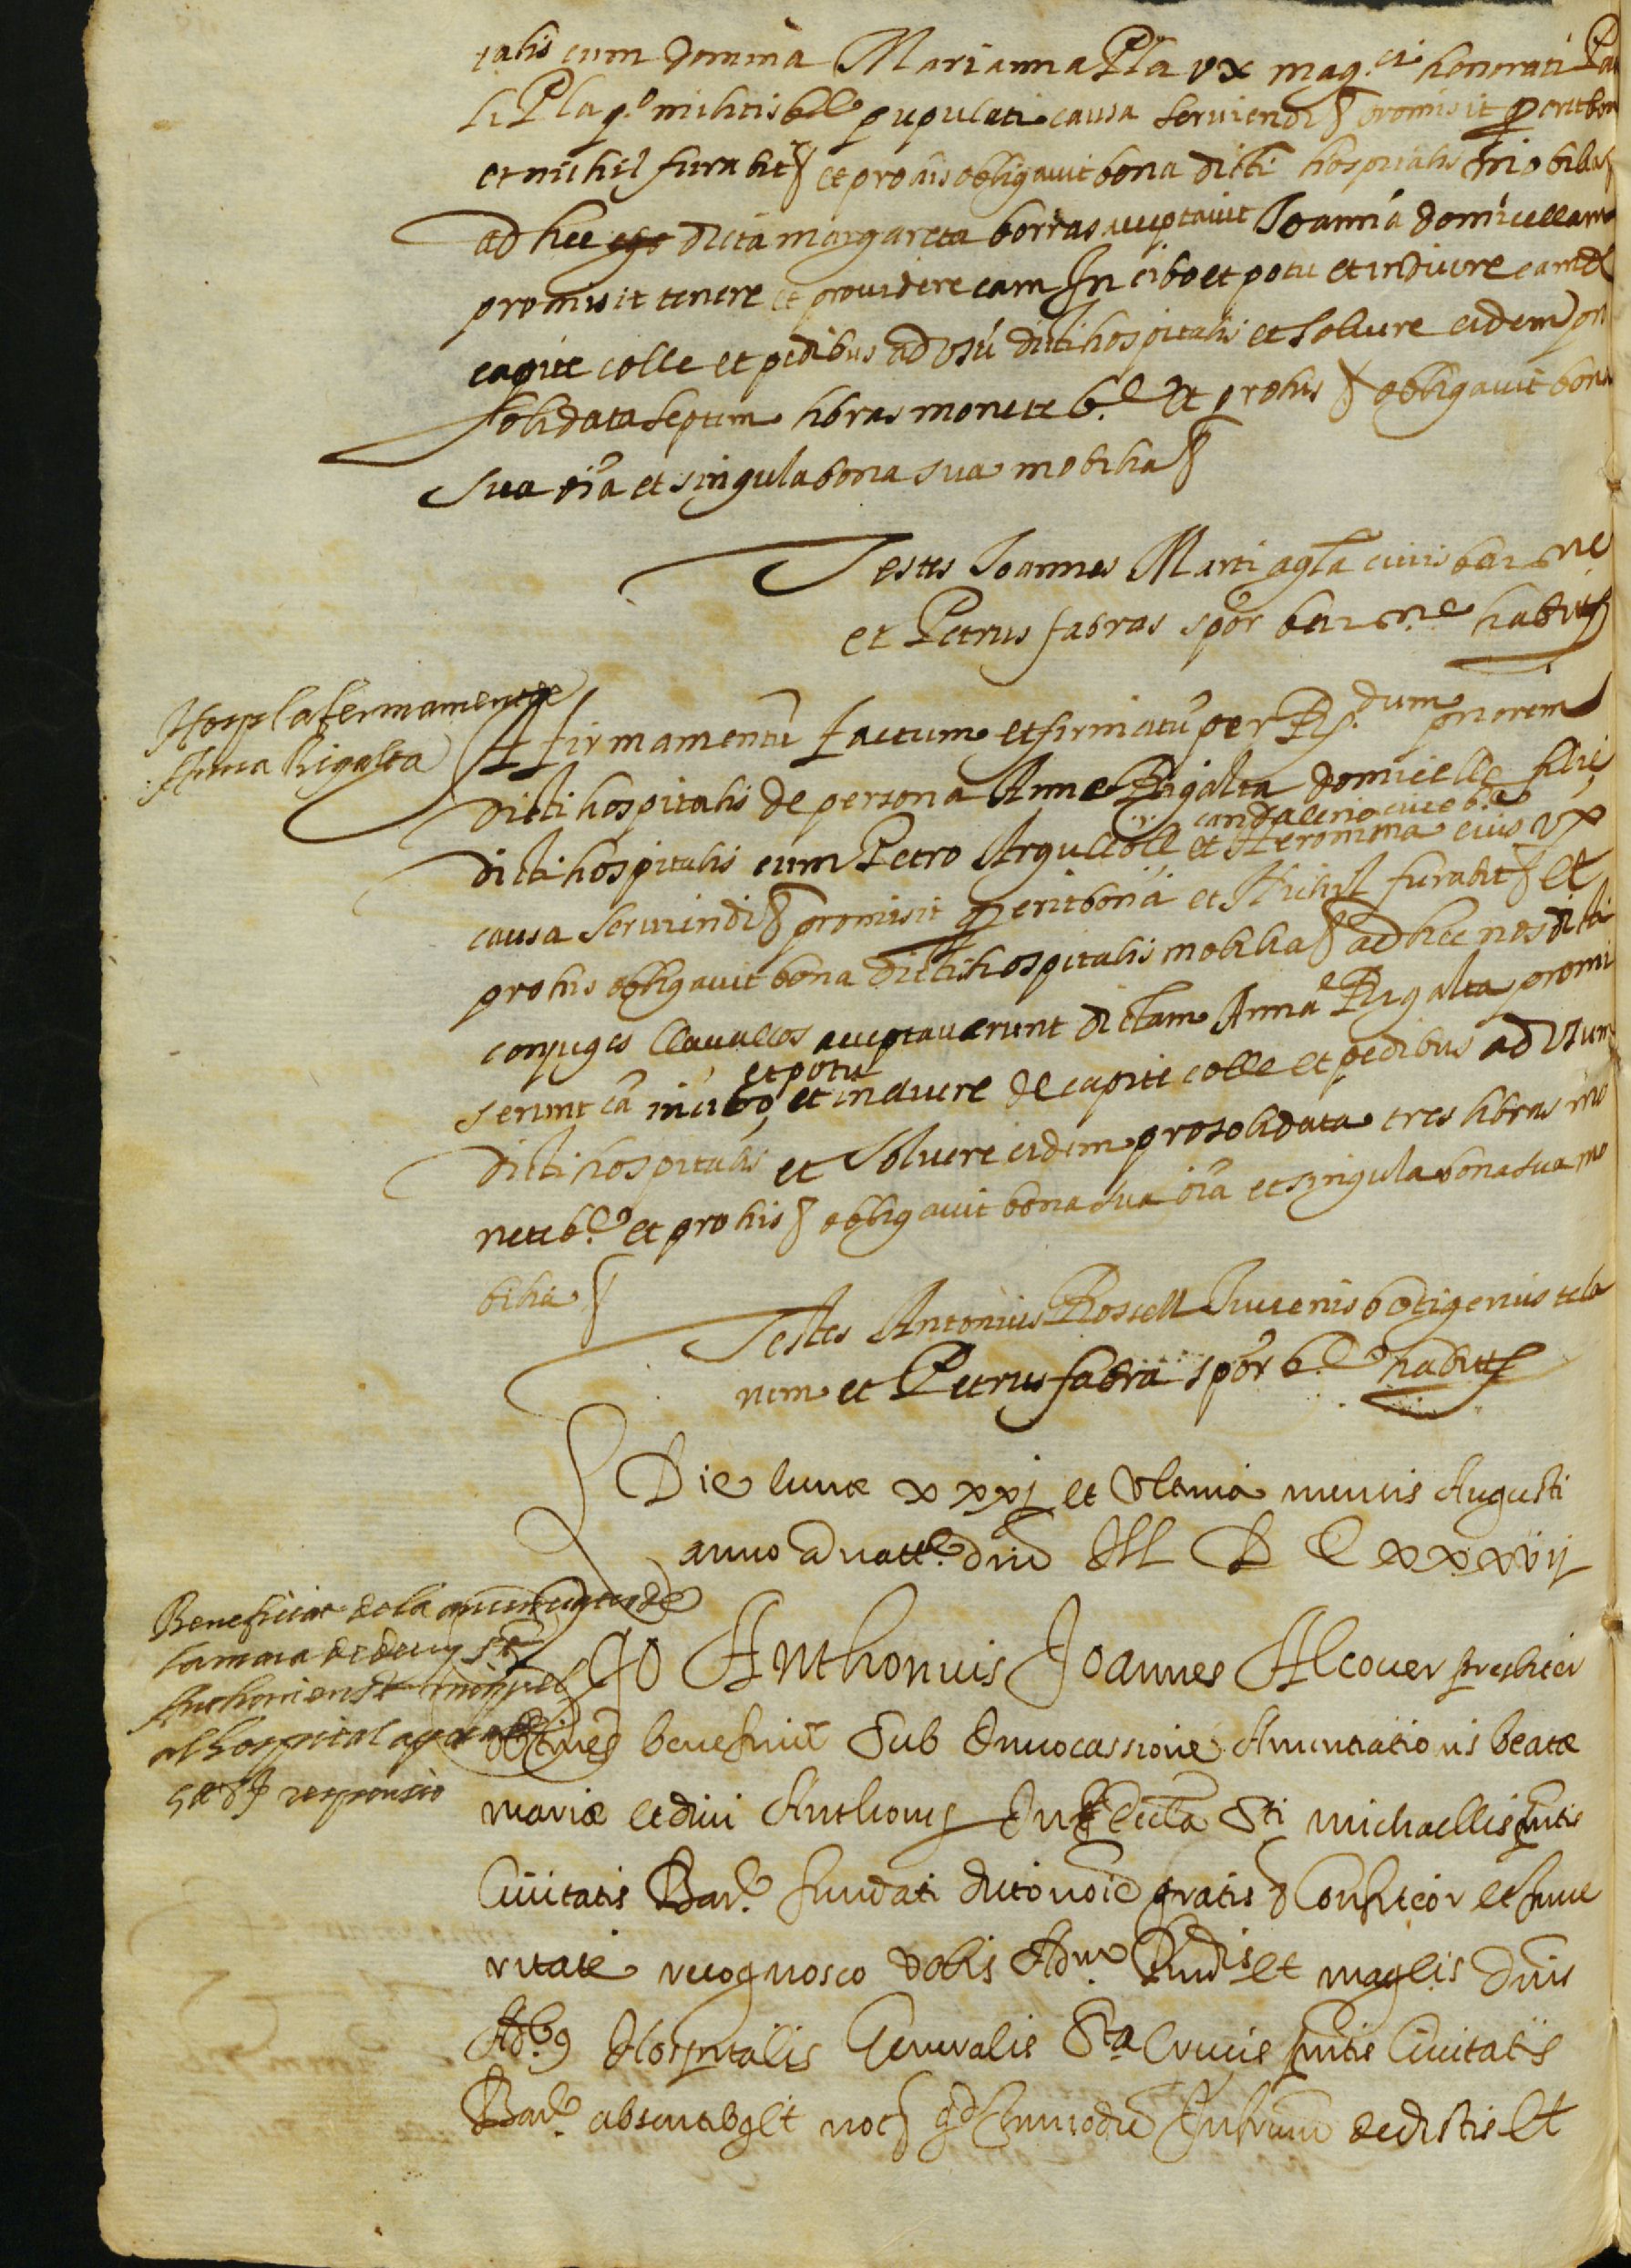 talis cum domina Marianna Pla ux mag.ci honorati Pa
li Pla q.º militis ble pupulati causa serviendi § promisit q erit bon
et nichil furabit § et pro his obligavit bona dicti hospitalis mobilia §
ad hec ego dicta margareta borras acceptavit Joanna domicellam
promisit tenere et providere eam In cibo et potu et induere eam d
capite colle et pedibus ad usu dicti hospitalis et solvere eidem pr
solidata septem libras monete b.e et pro his § obligavit bona
sua oia et singula bona sua mobilia §
Testes Joannes Marti agla civis barne
et Petrus fabras spor barne habit
Hospl afermament de
Anna Rigalta
Affirmamentu factum et firmatu per R.dum priorem
dicti hospitalis de persona Anne Rigalta domicelle filie
candalerio cive b.e
dicti hospitalis cum Petro Argullell et Heronima eius ux
causa serviendi § promisit q erit bona et Nichil furabit § et
pro his obligavit bona dicti hospitalis mobilia § ad hec nos dicti
conjuges acceptaverunt dictam Anna Rigalta promi
et potu
serunt ea in cibo, et induere de capite colle et pedibus ad usum
dicti hospitalis et solvere eidem pro solidata tres libras mo
nete b.e et pro his § obligavit bona sua oia et singula bona sua mo
bilia §
Testes Antonius Rossell Juvenis botigerius tela
rum et Petrus fabra spor b.e habit
Die lunæ xxxj et ultima mensis Augusti
anno a natte dni M D C xxxvij
Beneficiat de la anunciatio de
la maria de deu y St
Anthoni en St miquel
al hospital
responsio
Ego Anthonius Joannes Alcover presbiter
obtines beneficiu sub Invocassione Anuntiationis beatæ
mariæ et divi Anthonij In Ecclia Sti michaellis pntis
Civitatis Bar.e fundati dicto noie gratis § Confiteor et in ve
ritate recognosco vobis Adm. Rndis et maglis dnis
Adb9 Hospitalis Generalis Sta Crucis pntis Civitatis
Bar.e absentibg et not § qd Immodu Infrum dedistis et